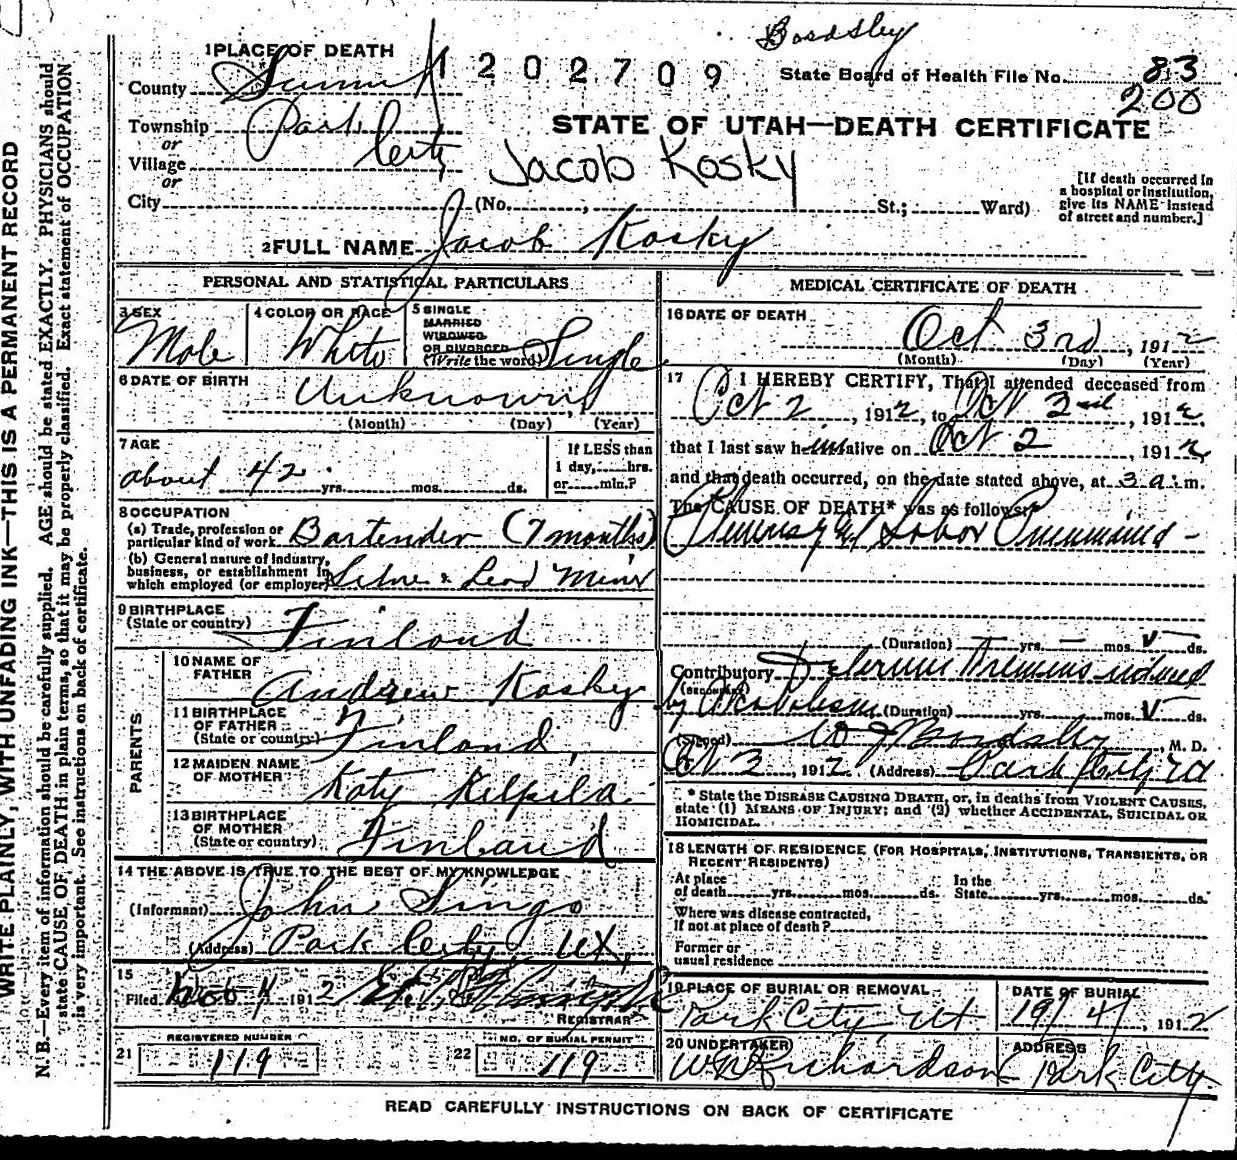 Bardsley
1 PLACE OF DEATH
1202709
State Board of Health File No. 83
200
County Summit
Township Park
or
Village City
or
STATE OF UTAH—DEATH CERTIFICATE
Jacob Kosky
[If death occurred in
a hospital or institution,
give its NAME instead
of street and number.]
City (No. , St.; Ward)
2 FULL NAME Jacob Kosky
PERSONAL AND STATISTICAL PARTICULARS
3 SEX
Male
4 COLOR OR RACE
White
5 SINGLE
MARRIED
WIDOWED
OR DIVORCED
(Write the word) Single
6 DATE OF BIRTH
Unknown
(Month) (Day) (Year)
7 AGE
about 42 yrs. mos. ds.
If LESS than
1 day, hrs.
or min.?
8 OCCUPATION
(a) Trade, profession or
particular kind of work Bartender (7 months)
(b) General nature of industry,
business, or establishment in
which employed (or employer) Silver & Lead Miner
9 BIRTHPLACE
(State or country) Finland
PARENTS
10 NAME OF
FATHER Andrew Kosky
11 BIRTHPLACE
OF FATHER
(State or country) Finland
12 MAIDEN NAME
OF MOTHER Katy Kilpila
13 BIRTHPLACE
OF MOTHER
(State or country) Finland
14 THE ABOVE IS TRUE TO THE BEST OF MY KNOWLEDGE
(Informant) John Singo
(Address) Park City Ut.
15
Filed 4 1912
REGISTRAR
REGISTERED NUMBER
21 119
NO. OF BURIAL PERMIT
22 119
MEDICAL CERTIFICATE OF DEATH
16 DATE OF DEATH
Oct 3rd, 1912
(Month) (Day) (Year)
17 I HEREBY CERTIFY, That I attended deceased from
Oct 2, 1912, to Oct 2nd, 1912,
that I last saw him alive on Oct 2 1912,
and that death occurred, on the date stated above, at 3 a. m.
The CAUSE OF DEATH* was as follows:
Pleurisy and Lobar Pneumonia -
(Duration) yrs. — mos. ds.
Contributory Delerium Tremens induced
(SECONDARY)
by Alcoholism (Duration) yrs. mos. ds.
(Signed) W J Bardsley, M. D.
Oct 3, 1912 (Address) Park City
* State the DISEASE CAUSING DEATH, or, in deaths from VIOLENT CAUSES,
state (1) MEANS OF INJURY; and (2) whether ACCIDENTAL, SUICIDAL OR
HOMICIDAL.
18 LENGTH OF RESIDENCE (FOR HOSPITALS, INSTITUTIONS, TRANSIENTS, OR
RECENT RESIDENTS)
At place
of death yrs. mos. ds.
In the
State yrs. mos. ds.
Where was disease contracted,
If not at place of death?
Former or
usual residence
19 PLACE OF BURIAL OR REMOVAL
Park City Ut
DATE OF BURIAL
10/4, 1912
20 UNDERTAKER
Richardson
ADDRESS
Park City
READ CAREFULLY INSTRUCTIONS ON BACK OF CERTIFICATE
WRITE PLAINLY, WITH UNFADING INK—THIS IS A PERMANENT RECORD
N. B.—Every item of information should be carefully supplied. AGE should be stated EXACTLY. PHYSICIANS should
state CAUSE OF DEATH in plain terms, so that it may be properly classified. Exact statement of OCCUPATION
is very important. See instructions on back of certificate.